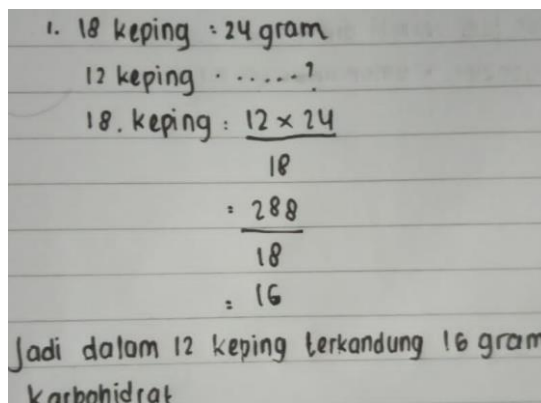 1. 18 keping : 24 gram
12 keping ......?
18. keping : 12 x 24
18
: 288
18
: 16
Jadi dalam 12 keping terkandung 16 gram
karbohidrat